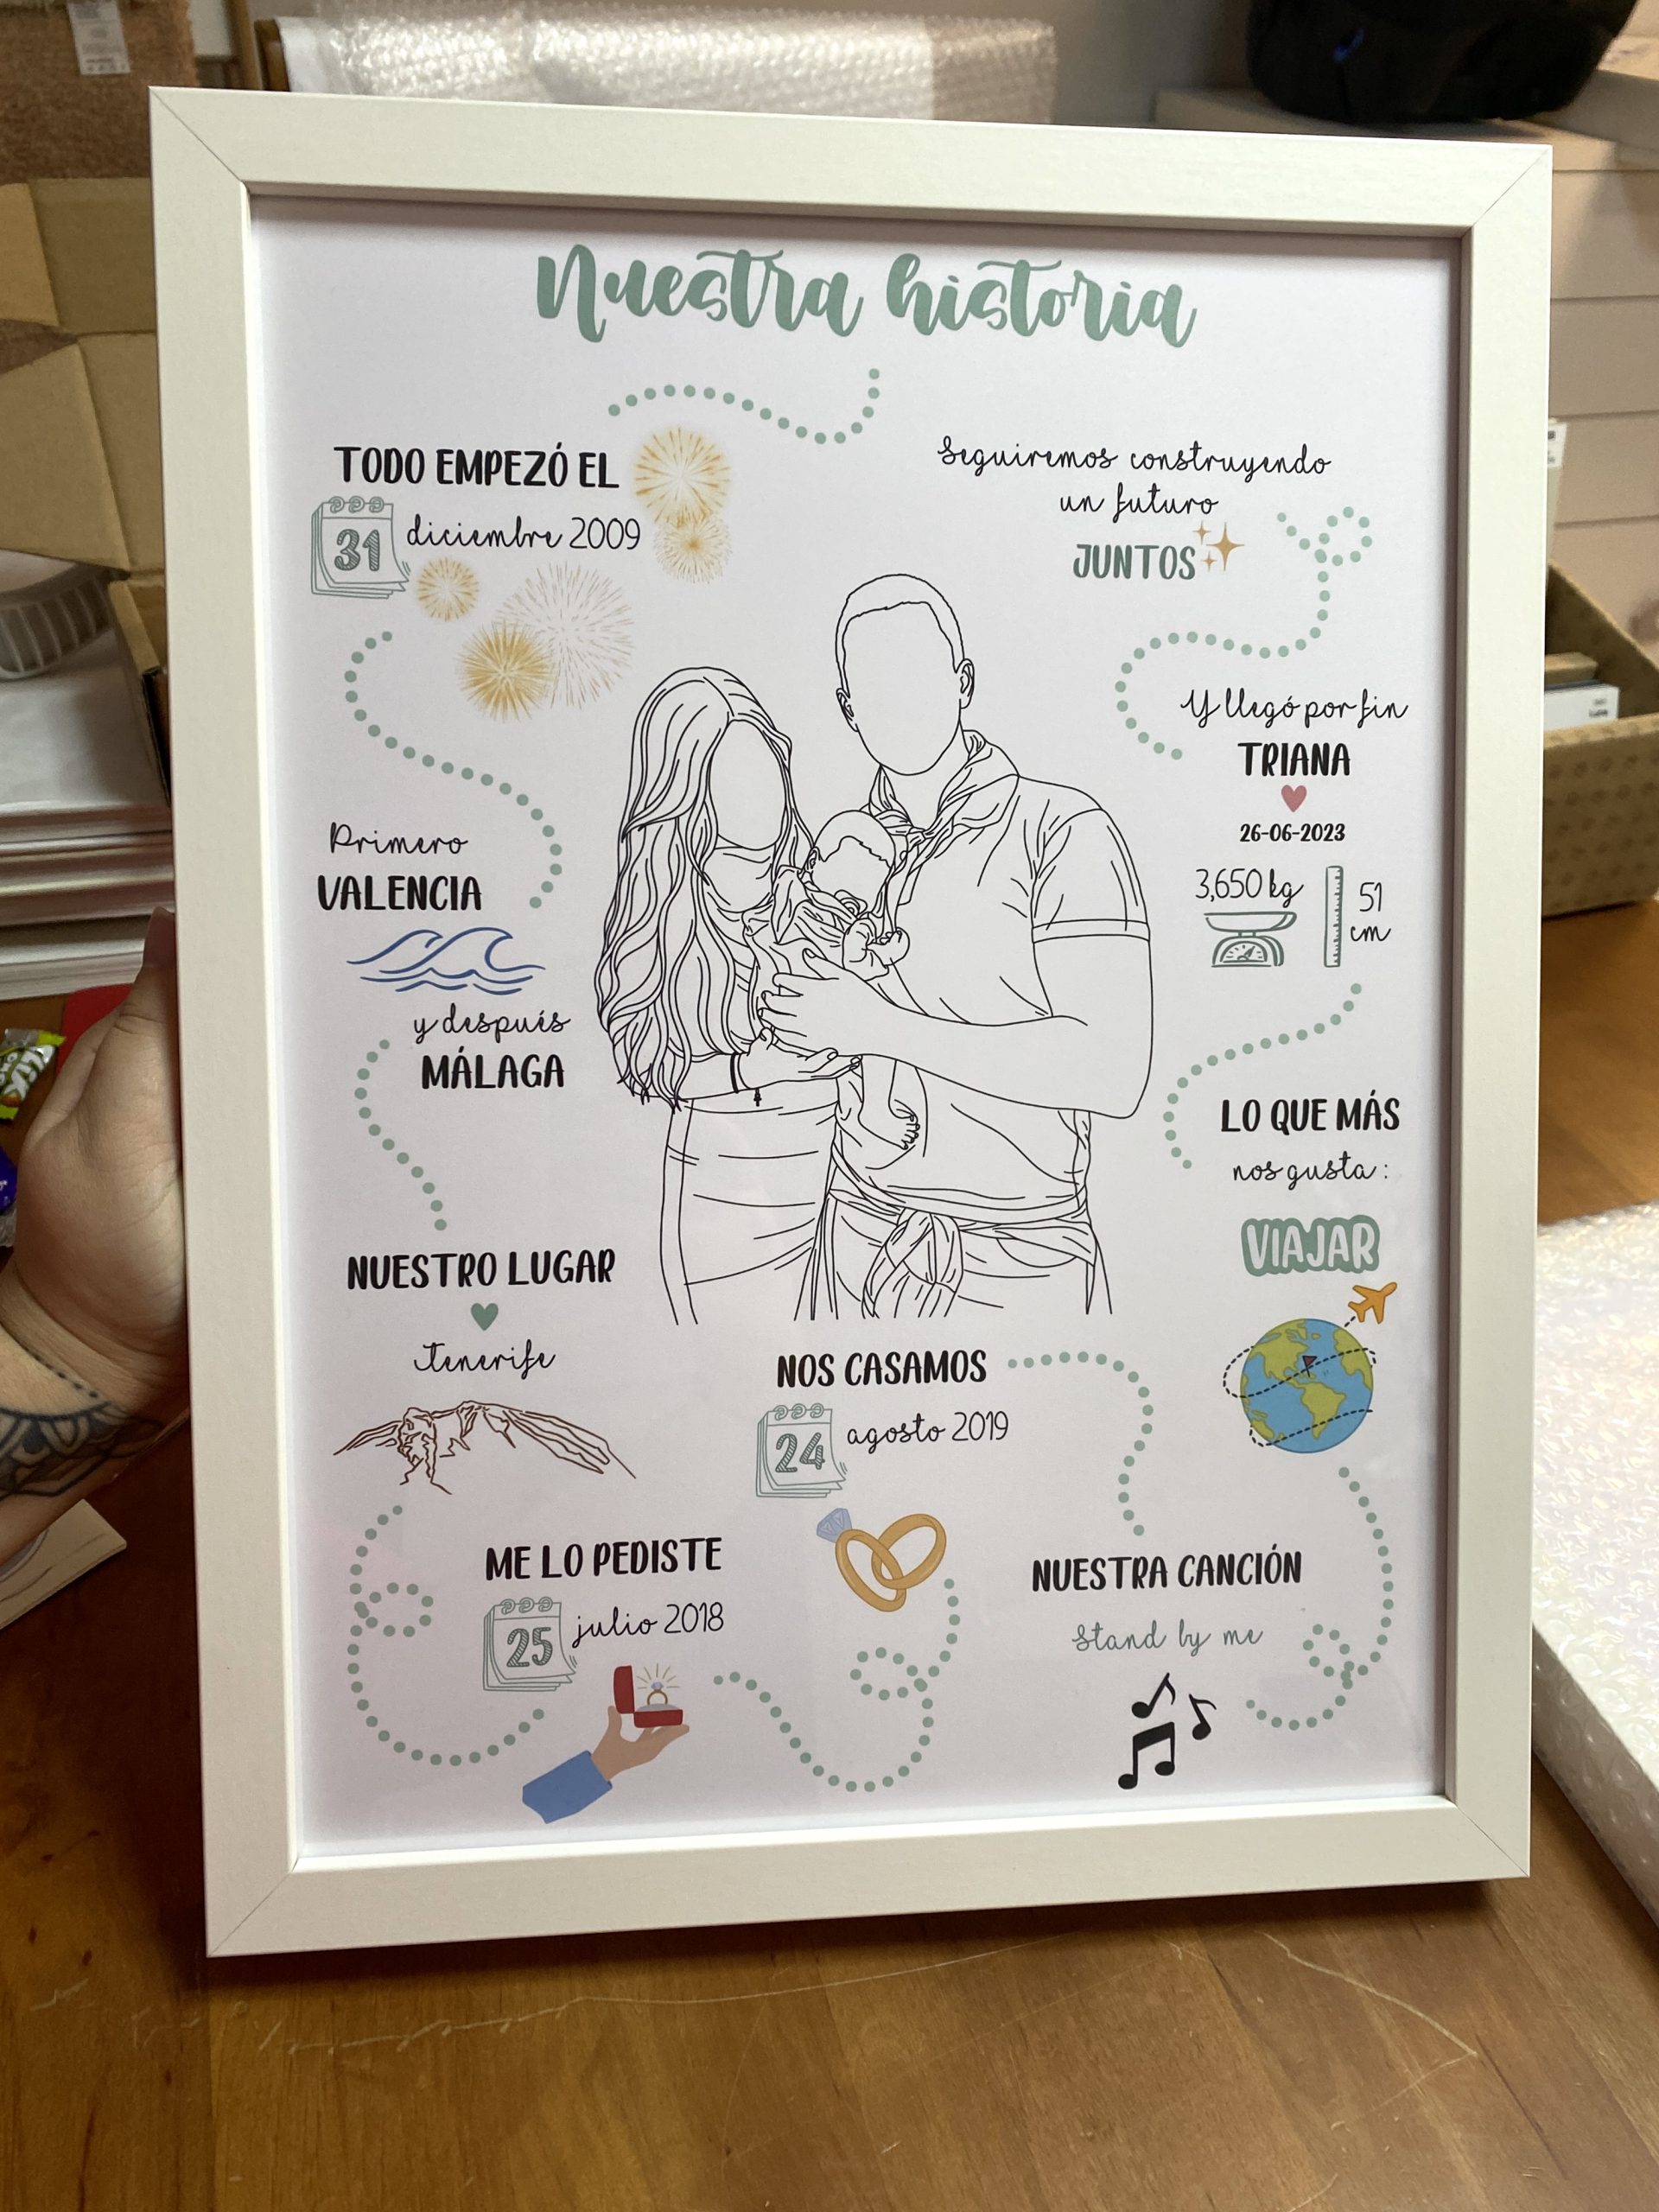 Nuestra historia
TODO EMPEZÓ EL
31 diciembre 2009
Primero
VALENCIA
y después
MÁLAGA
NUESTRO LUGAR
Tenerife
ME LO PEDISTE
25 julio 2018
NOS CASAMOS
24 agosto 2019
NUESTRA CANCIÓN
Stand by me
LO QUE MÁS
nos gusta:
VIAJAR
Y llegó por fin
TRIANA
26-06-2023
3,650 kg
51
cm
Seguiremos construyendo
un futuro
JUNTOS